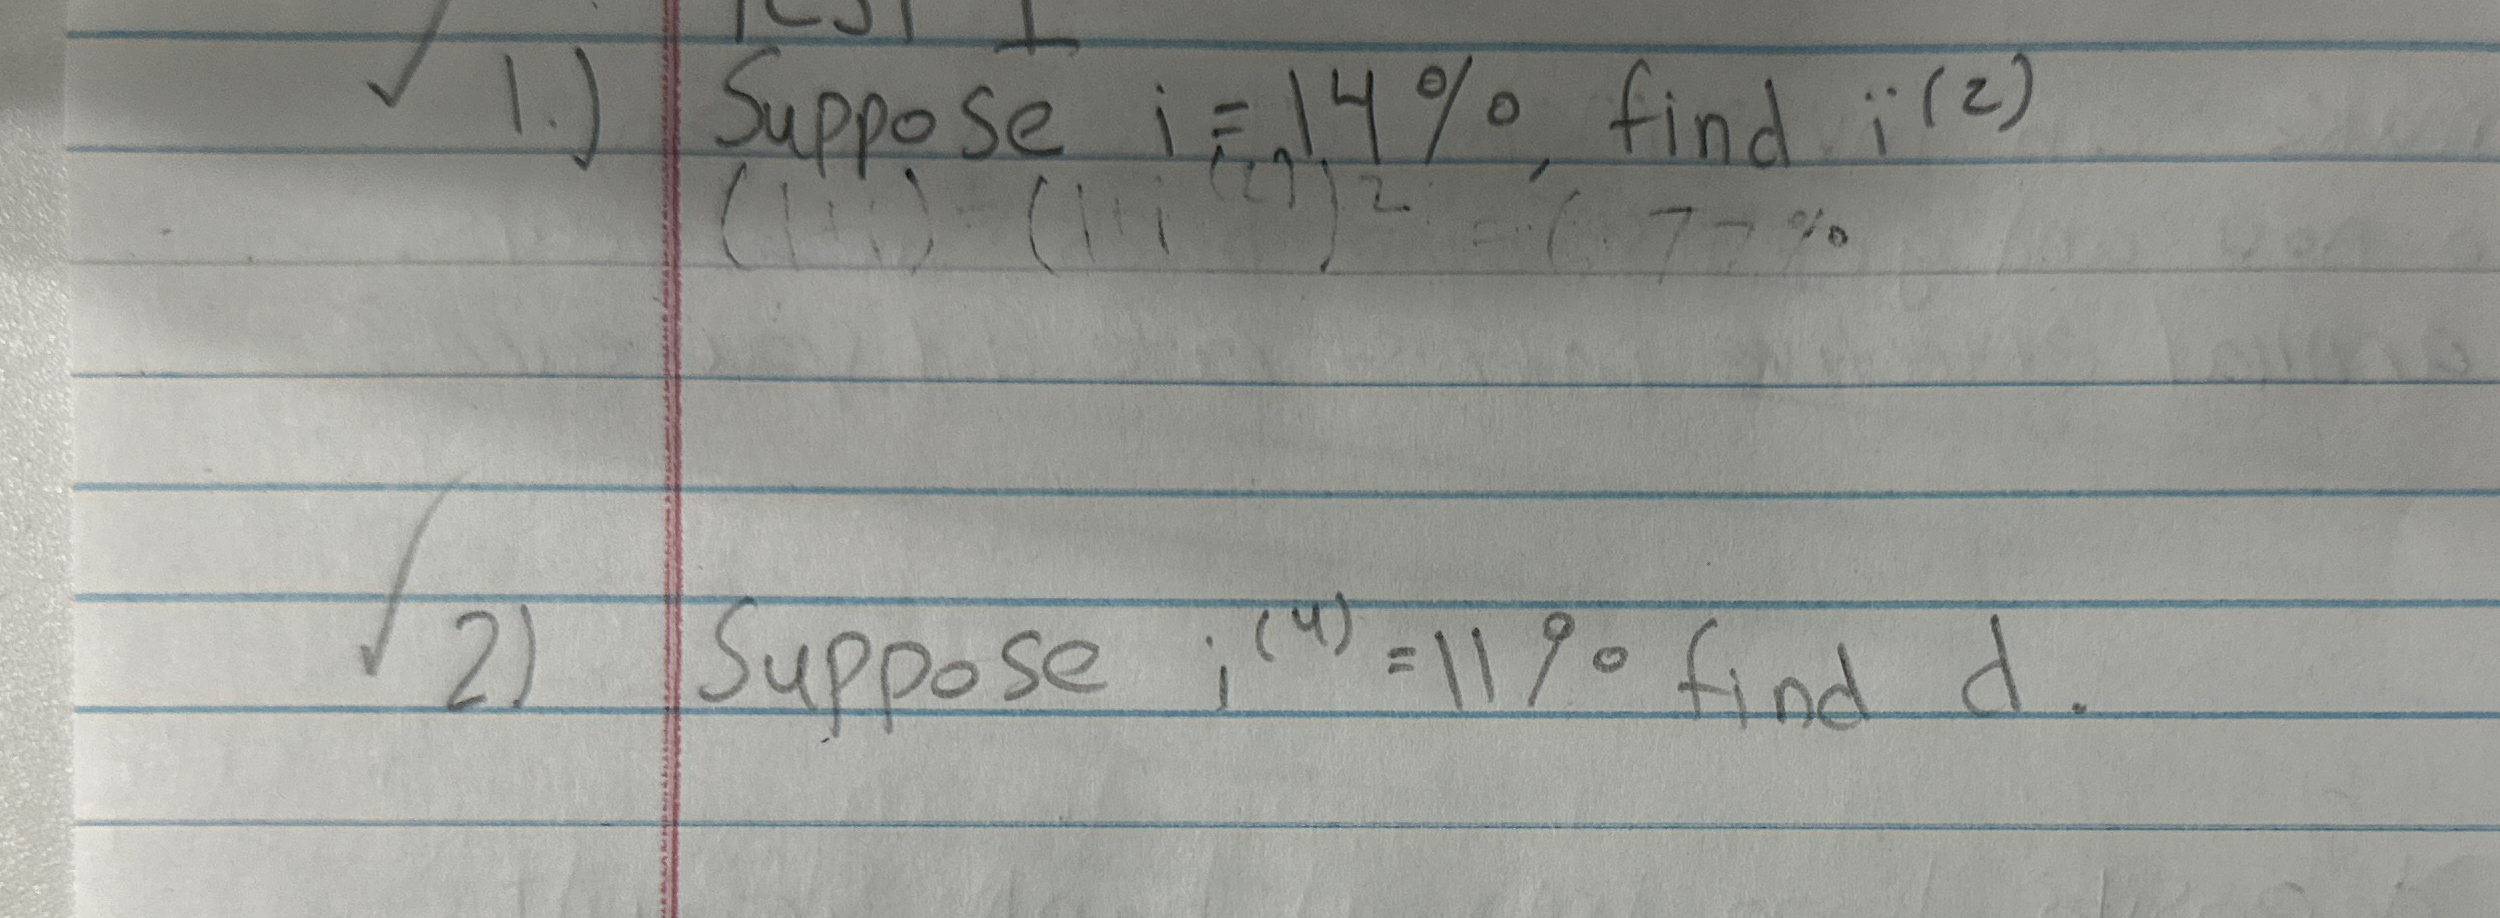 Test 1
1.) Suppose i = 14%, find i^(2)
(1+i) = (1+i^(2))^2 = 6.77%
2) Suppose i^(4) = 11% find d.